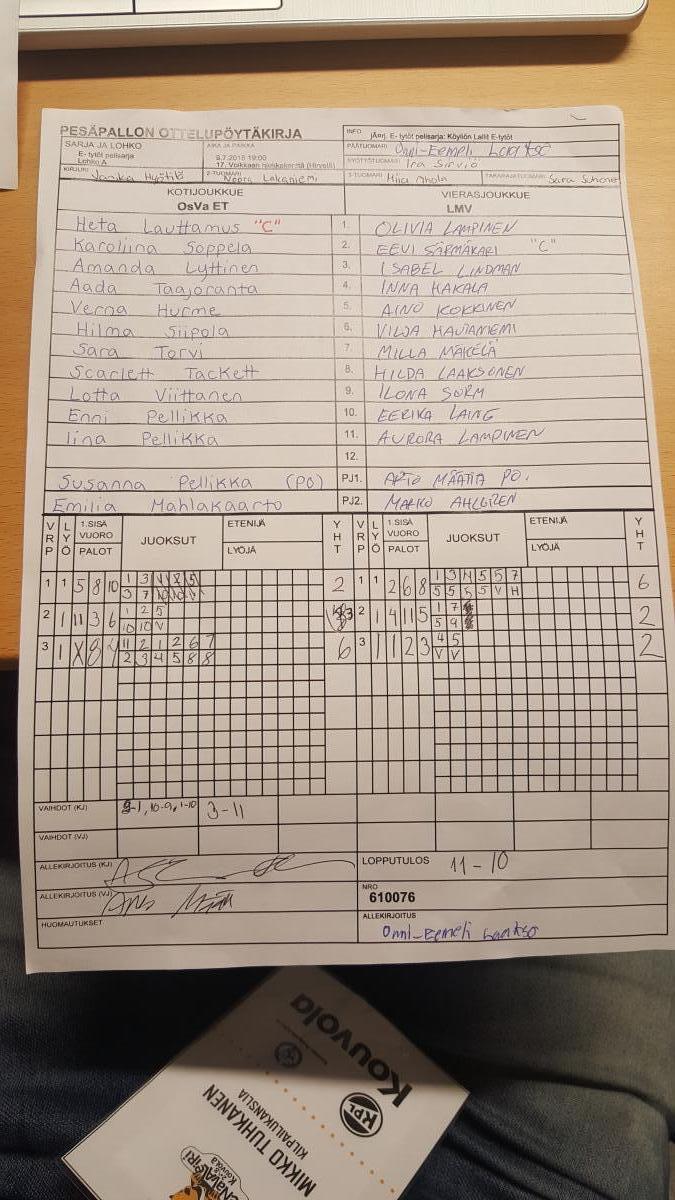 PESÄPALLON OTTELUPÖYTÄKIRJA
INFO jÄnj. E- tytöt pelisarja: Köyliön Lallit E-tytöt
SARJA JA LOHKO
E- tytöt pelisarja
Lohko A
AIKA JA PAIKKA
9.7.2015 19:00
17. Voikkaan hiekkakenttä (Hirvelä)
PÄÄTUOMARI Onni-Eemeli Laakso
SYÖTTÖTUOMARI Ira Sirviö
KIRJURI Janika Hyötilä 2-TUOMARI Noora Lakaniemi 3-TUOMARI Miia Ahola TAKARAJATUOMARI Sara
KOTIJOUKKUE VIERASJOUKKUE
OsVa ET LMV
Heta Lauttamus "C" 1. OLIVIA LAMPINEN
Karoliina Soppela 2. EEVI SÄRMÄKARI "C"
Amanda Lyttinen 3. ISABEL LINDMAN
Aada Taajoranta 4. INNA HAKALA
Verna Hurme 5. AINO KOKKINEN
Hilma Siipola 6. VILJA HAUTANIEMI
Sara Torvi 7. MILLA MÄKELÄ
Scarlett Tackett 8. HILDA LAAKSONEN
Lotta Viittanen 9. ILONA SORM
Enni Pellikka 10. EERIKA LAINE
Iina Pellikka 11. AURORA LAMPINEN
12.
Susanna Pellikka (PO) PJ1. ARTO MÄÄTTÄ PO.
Emilia Mahlakaarto PJ2. MARKO AHLGREN
VRP LYÖ 1.SISÄ VUORO PALOT JUOKSUT ETENIJÄ LYÖJÄ YHT VRP LYÖ 1.SISÄ VUORO PALOT JUOKSUT ETENIJÄ LYÖJÄ YHT
1 1 5 8 10 1 3 2 1 1 2 6 8 1 3 4 5 5 7 6
3 7 5 5 5 5 V H
2 1 11 3 6 1 2 5 3 2 1 4 11 5 1 7 2
10 10 V 5 9
3 1 X 8 11 2 1 2 6 7 6 3 1 1 2 3 4 5 2
2 3 4 5 8 8 V V
VAIHDOT (KJ) 9-1, 10-9, 1-10 3-11
VAIHDOT (VJ)
ALLEKIRJOITUS (KJ) LOPPUTULOS 11-10
ALLEKIRJOITUS (VJ) NRO 610076
HUOMAUTUKSET ALLEKIRJOITUS Onni-Eemeli Laakso
Kouvola
KPL
MIKKO TUHKANEN
KILPAILUKANSLIA